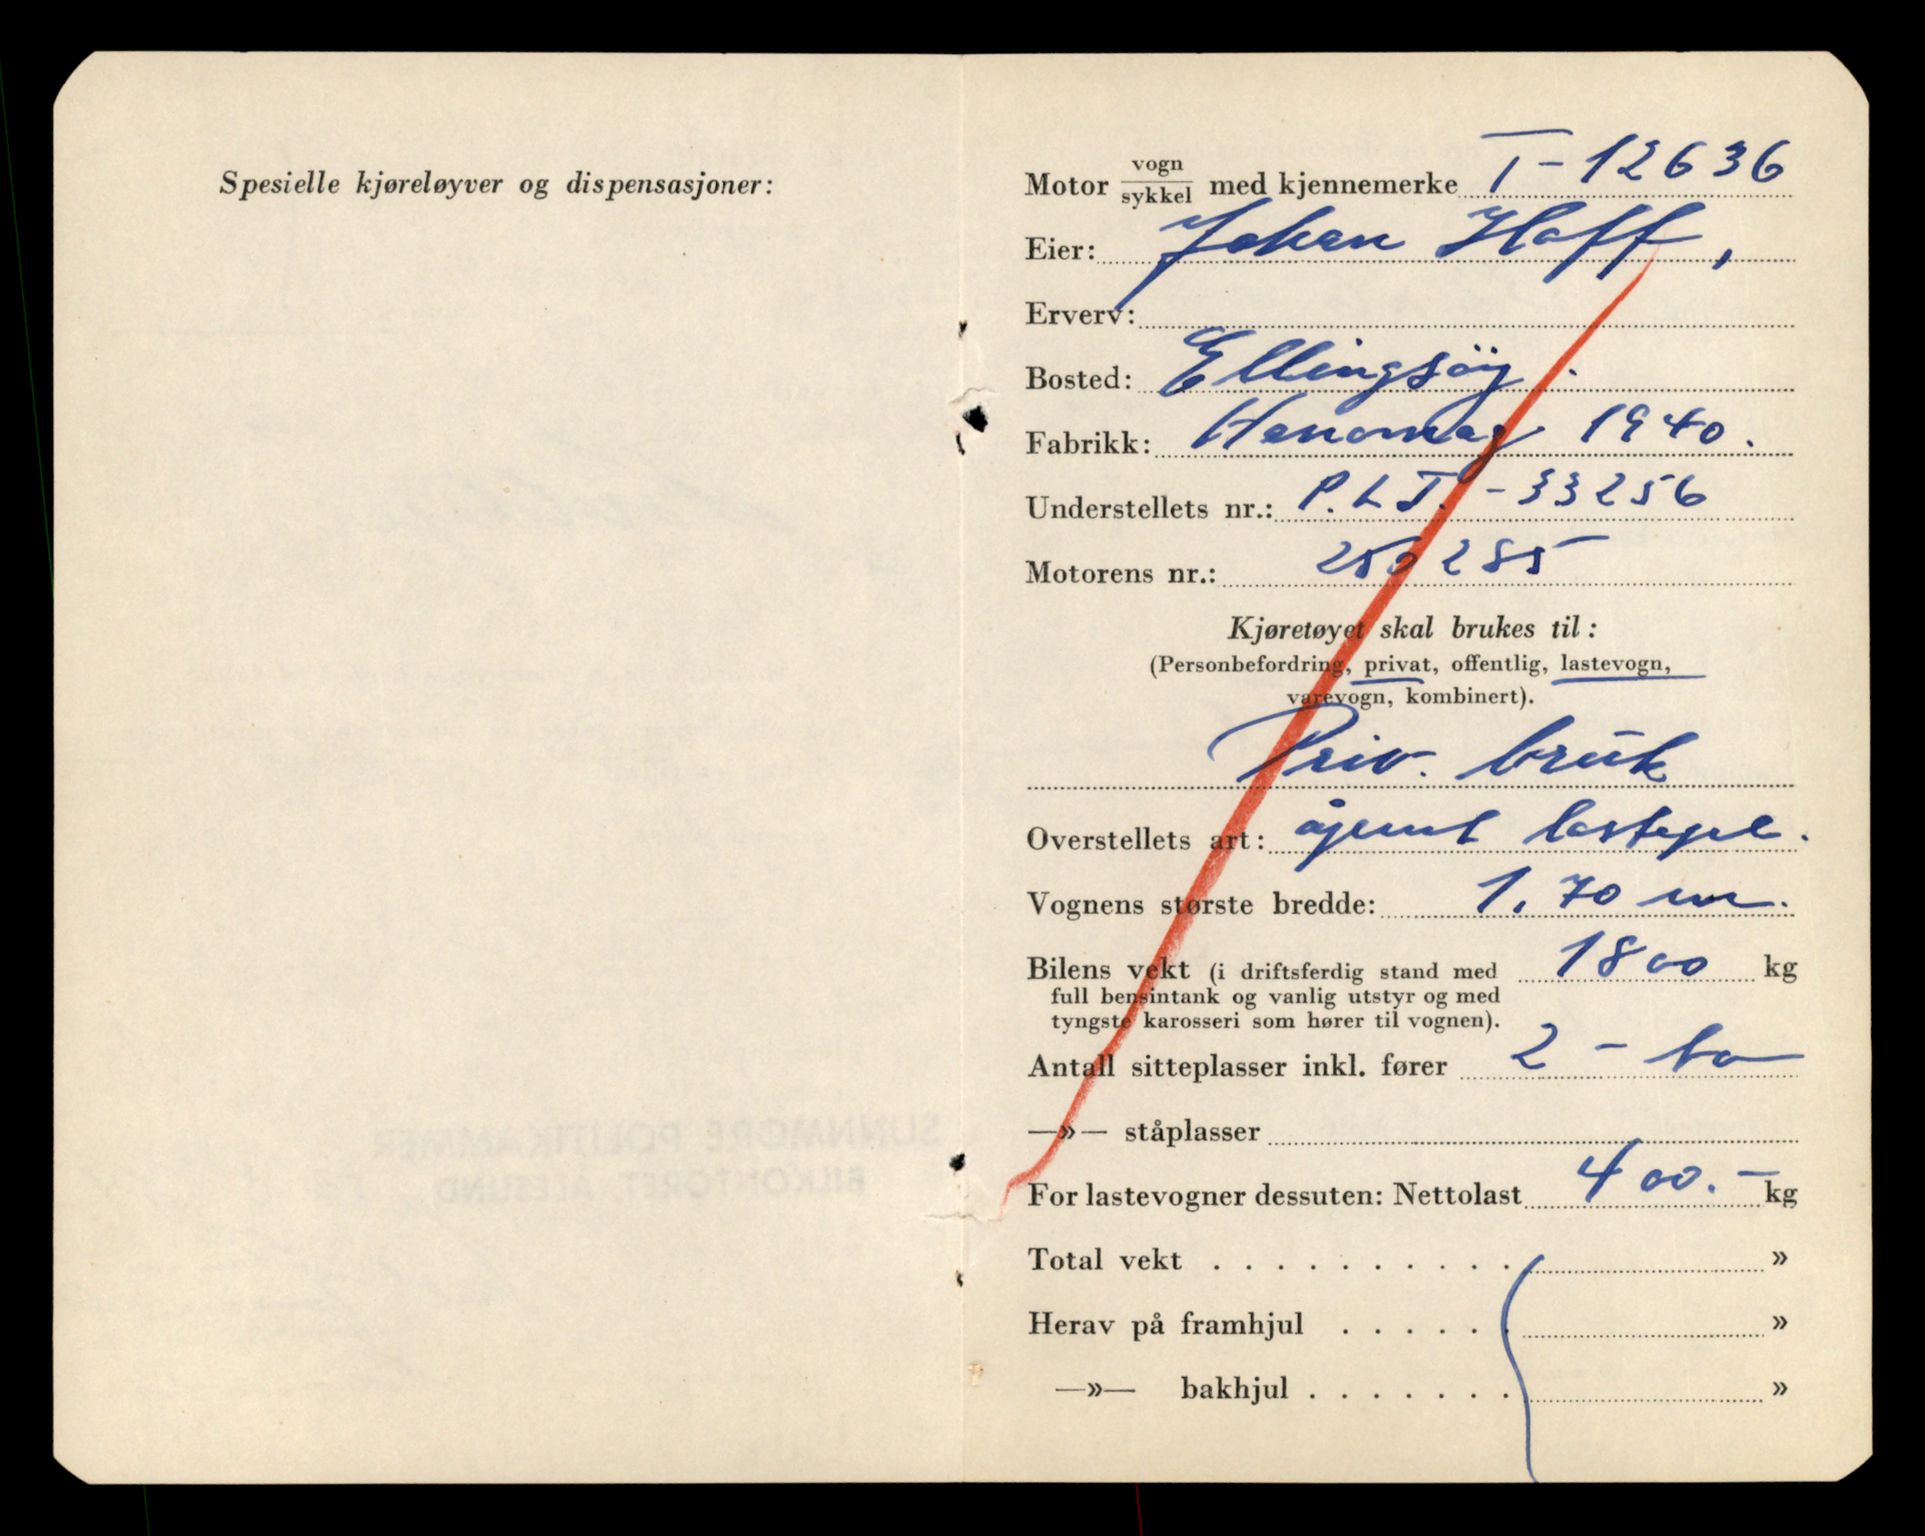 Spesielle kjøreløyver og dispensasjoner:
Motor vogn/sykkel med kjennemerke T-12636
Eier: Johan Hoff,
Erverv:
Bosted: Ellingsöy.
Fabrikk: Hanomag 1940.
Understellets nr.: P.L.T.-33256
Motorens nr.: 250285
Kjøretøyet skal brukes til:
(Personbefordring, privat, offentlig, lastevogn,
varevogn, kombinert).
Priv. bruk
Overstellets art: åpent lastepl.
Vognens største bredde: 1.70 m.
Bilens vekt (i driftsferdig stand med 1800 kg
full bensintank og vanlig utstyr og med
tyngste karosseri som hører til vognen).
Antall sitteplasser inkl. fører 2 - to
—»— ståplasser
For lastevogner dessuten: Nettolast 400.- kg
Total vekt . . . . . . . . . . »
Herav på framhjul . . . . . . »
—»— bakhjul . . . . . . . »
SUNNMØRE POLITIKAMMER
BILKONTORET, ÅLESUND